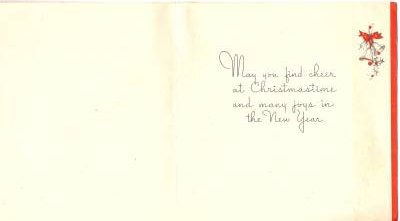 May you find cheer
at Christmastime
and many joys in
the New Year.